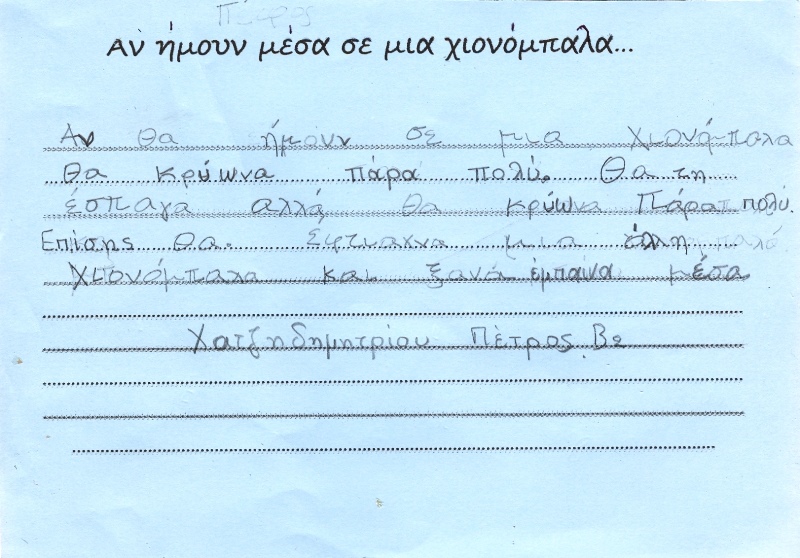 Πέτρος
Αν ήμουν μέσα σε μια χιονόμπαλα...
Αν θα ήμουν σε μια χιονόμπαλα
θα κρύωνα πάρα πολύ. Θα τη
έσπαγα αλλά θα κρύωνα Πάρα πολύ.
Επίσης θα έφτιαχνα μια άλλη
χιονόμπαλα και ξανά έμπαινα μέσα
Χατζηδημητρίου Πέτρος Β2